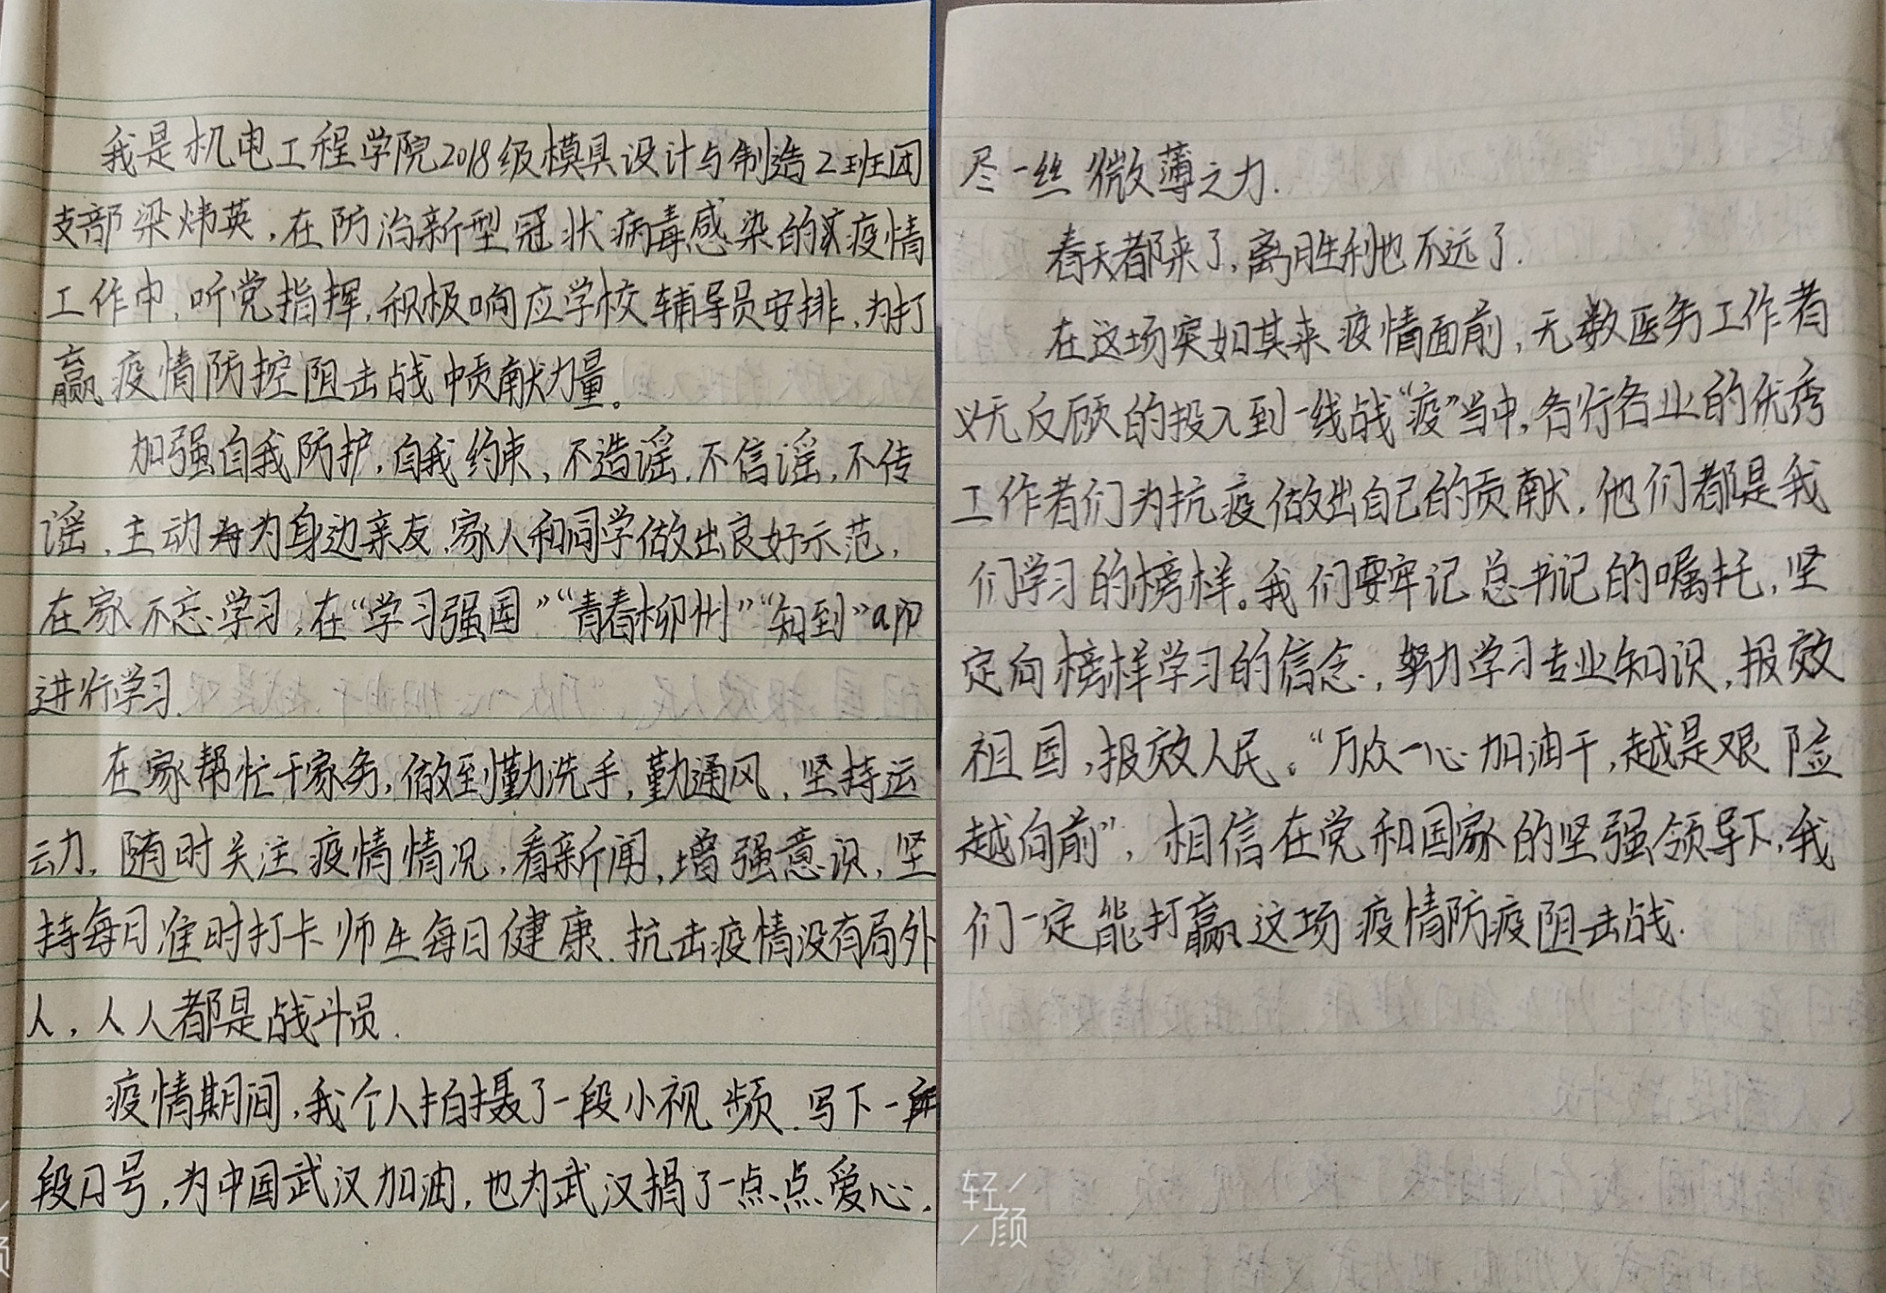 我是机电工程学院2018级模具设计与制造2班团
支部梁炜英,在防治新型冠状病毒感染的疫情
工作中,听党指挥,积极响应学校辅导员安排,为打
赢疫情防控阻击战中贡献力量。
加强自我防护,自我约束,不造谣,不信谣,不传
谣,主动为身边亲友,家人和同学做出良好示范,
在家不忘学习,在“学习强国”“青春柳州”“知到”app
进行学习.
在家帮忙干家务,做到勤洗手,勤通风,坚持运
动,随时关注疫情情况,看新闻,增强意识,坚
持每日准时打卡师生每日健康.抗击疫情没有局外
人,人人都是战斗员.
疫情期间,我个人拍摄了一段小视频.写下一
段口号,为中国武汉加油,也为武汉捐了一点点爱心,
尽一丝微薄之力.
春天都来了,离胜利也不远了.
在这场突如其来疫情面前,无数医务工作者
义无反顾的投入到一线战“疫”当中,各行各业的优秀
工作者们为抗疫做出自己的贡献,他们都是我
们学习的榜样。我们要牢记总书记的嘱托,坚
定向榜样学习的信念,努力学习专业知识,报效
祖国,报效人民。“万众一心加油干,越是艰险
越向前”,相信在党和国家的坚强领导下,我
们一定能打赢这场疫情防疫阻击战.
轻
颜